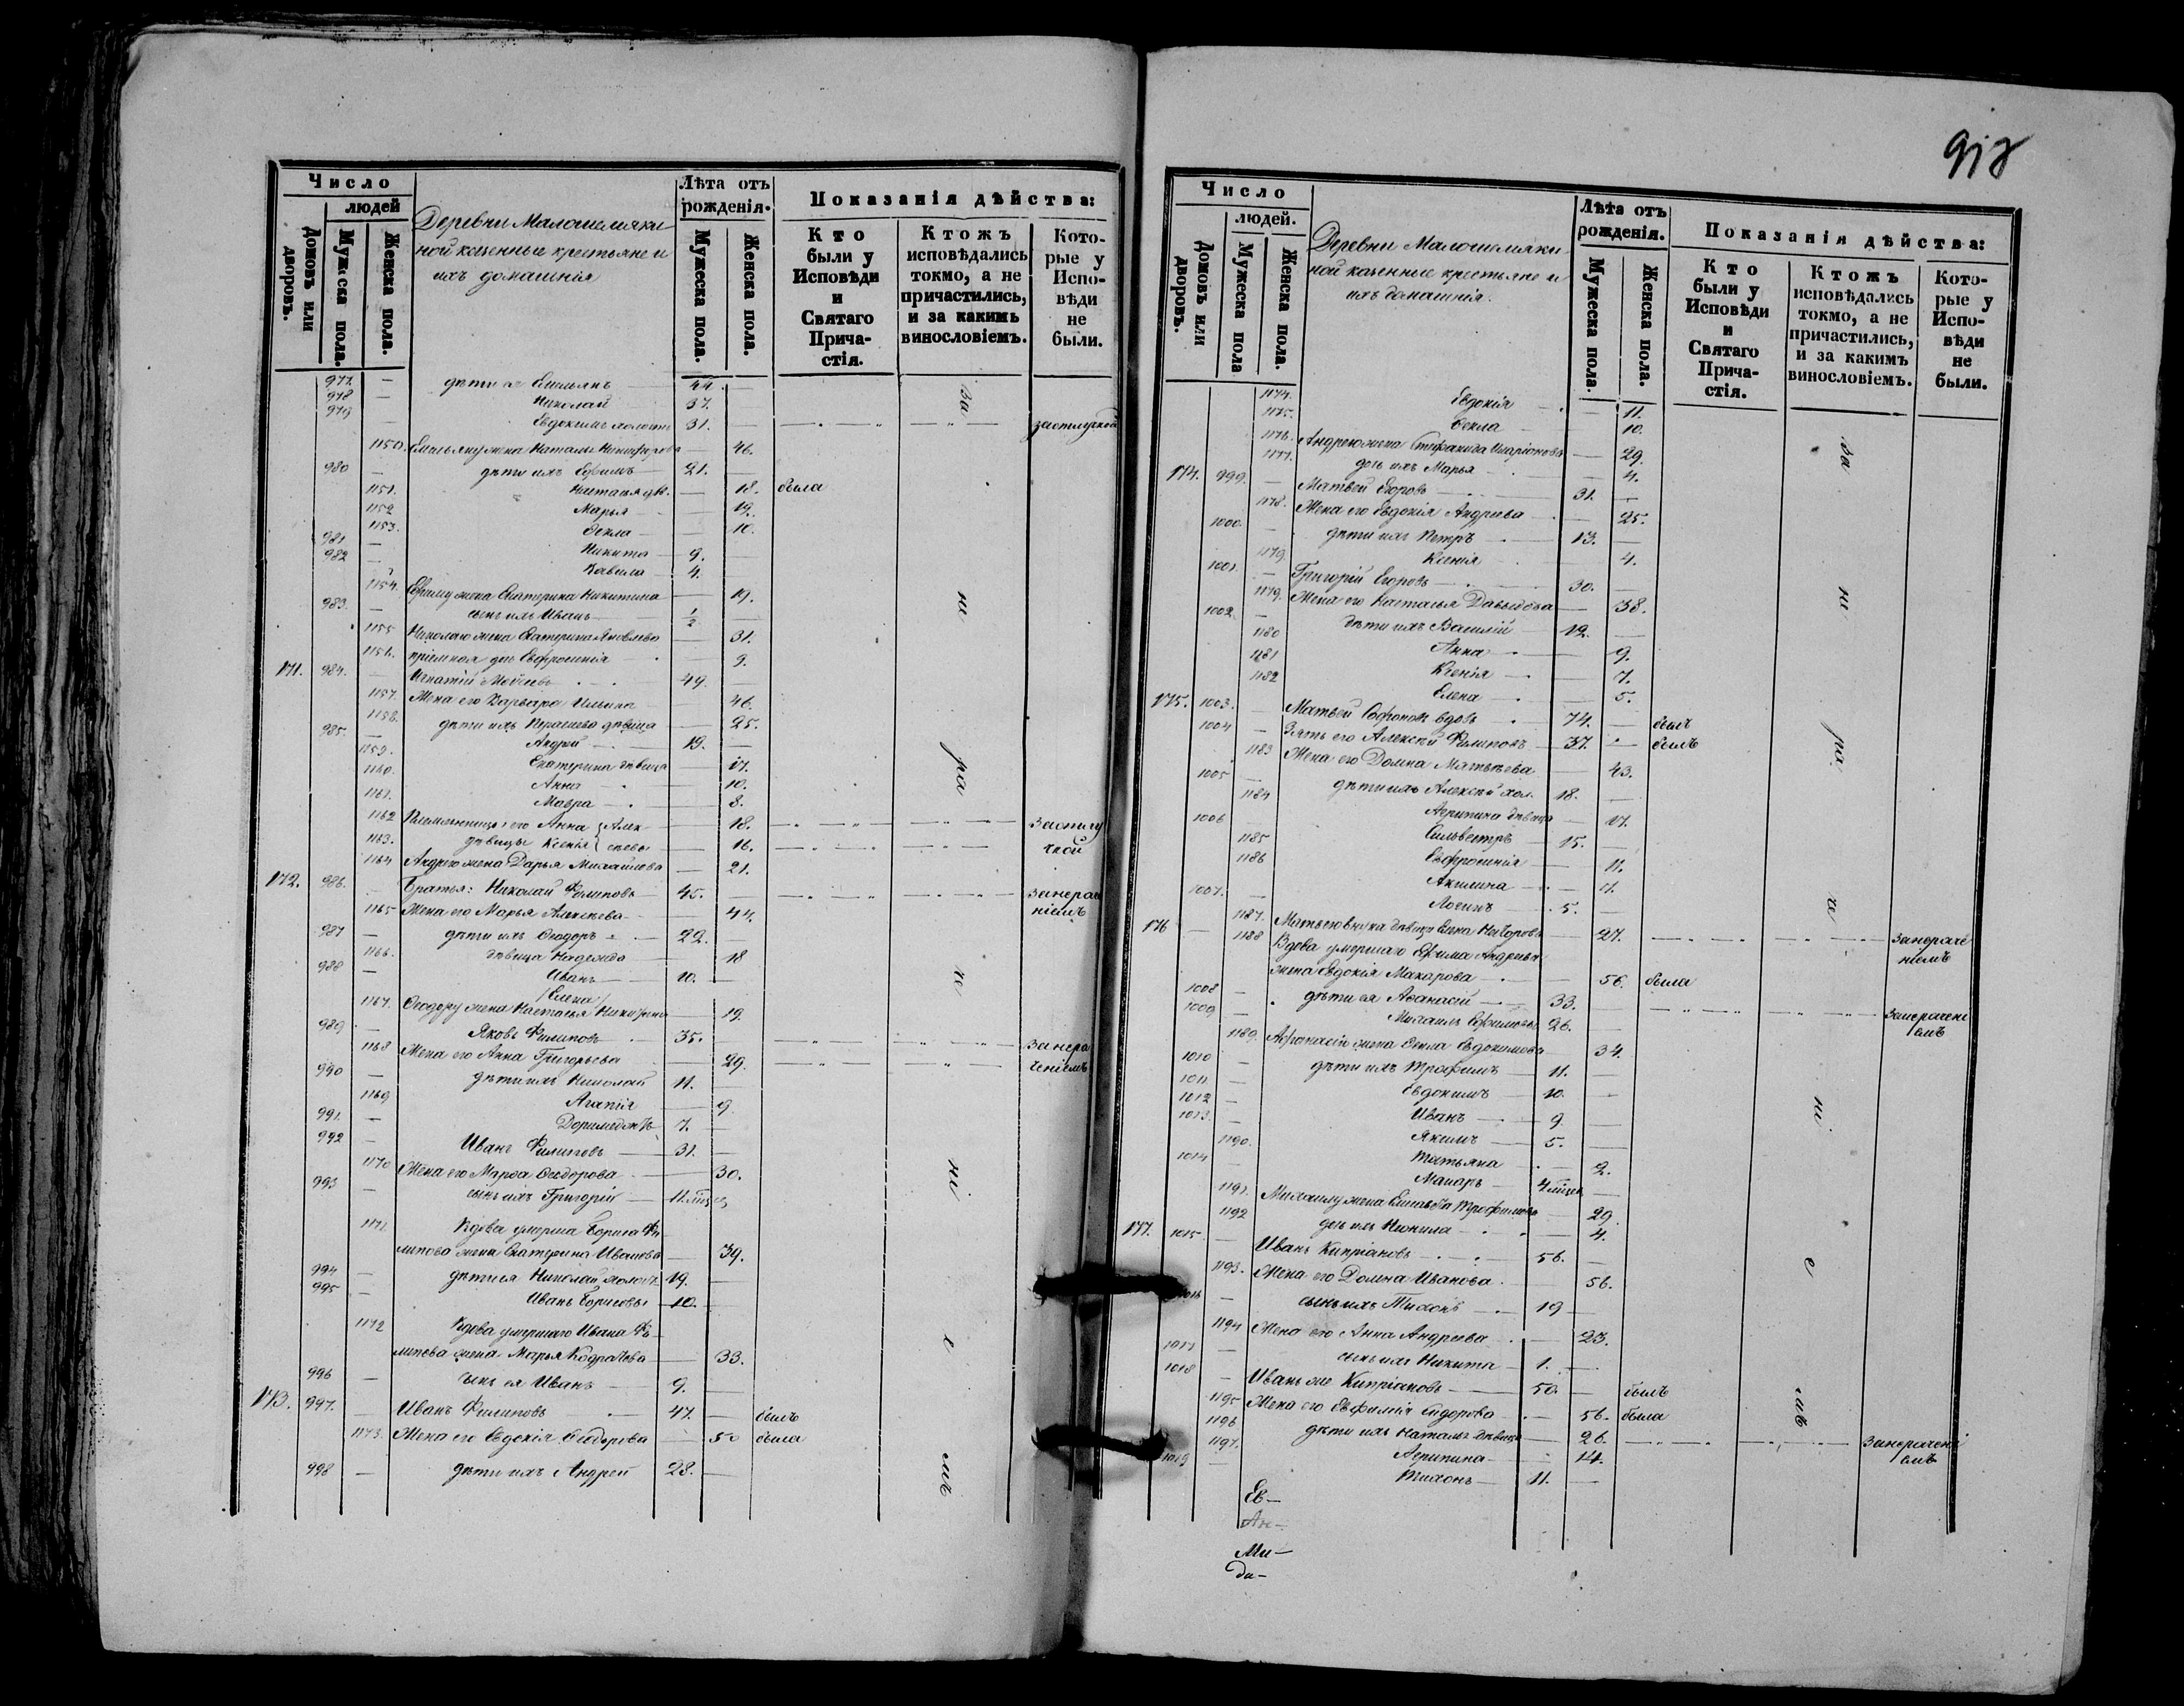 Число
людей
Домовъ или дворовъ.
Мужеска пола.
Женска пола.
Деревни Малошелмяки-
ной казенные крестьяне и
ихъ домашнія
Лѣта отъ рожденія.
Мужеска пола.
Женска пола.
Показанія дѣйства:
Кто были у Исповѣди и Святаго Прича-стія.
Ктожъ исповѣдались токмо, а не причастились, и за какимъ винословіемъ.
Кото-рые у Испо-вѣди не были.
977. — дѣти ея Емиліянъ 44. —
978 — Николай 37.
979 — Евдокимъ холостъ 31. — за отлучкой
1150. Емильяну жена Наталья Никифорова — 46.
980 — дѣти ихъ Ефимъ — 21. —
1151. Настасья дѣв. — 18. была
1152 Марья — 12.
1153. Ѳекла — 10.
981 — Никита — 9.
982 — Вавила 4.
1154. Ефиму жена Екатерина Никитина — 19.
983. — сынъ ихъ Иванъ 1/2 —
1155 Николаю жена Екатерина Яковлева — 31.
1156. пріемная дочь Евфросинія — 9.
171. 984. — Игнатій Моѵсеевъ 49. —
1157. Жена его Варвара Ильина 46.
1158. дѣти ихъ Параскева дѣвица — 25.
985. — Андрей — 19. —
1159. Екатерина дѣвица — 17.
1160. Анна — 10.
1161. Мавра — 8.
1162 Племянницы его Анна } Алек- — 18. — за отлу
1163. дѣвицы Ксенія } сѣевы — 16. — чкой
1164 Андрею жена Дарья Михайлова — 21.
172. 986. — Братья: Николай Филиповъ 45. — за нерач
1165 Жена его Марья Алексѣева — 44. ніемъ
987 — дѣти ихъ Ѳеодоръ — 22. —
1166. дѣвица Надежда 18
988 — Иванъ — 10. —
/Елена/
1167. Ѳеодору жена Настасья Никитина 19.
989 — Яковъ Филиповъ 35. — за нера
1168 Жена его Анна Григорьева 29. ченіемъ
990 — дѣти ихъ Николай 11. —
1169 Агапія — 9.
991. — Доримедонтъ 7. —
992 — Иванъ Филиповъ — 31. —
1170 Жена его Марѳа Ѳеодорова — 30.
993 — сынъ ихъ Григорій — 11. мѣсец
1171. Вдова умерша Бориса Фи
липова жена Екатерина Иванова — 39.
994 — дѣти ея Николай холостъ 19. —
995 — Иванъ Борисовы — 10. —
1172 Вдова умершаго Ивана Фи-
липова жена Марья Кодратова — 33.
996 — сынъ ея Иванъ — 9. —
173. 997. — Иванъ Филиповъ — 47. — былъ
1173. Жена его Евдокія Ѳеодорова 50 была
998 — дѣти ихъ Андрей 28. —
за не ра че ні е мъ
918
Число
людей.
Домовъ или дворовъ.
Мужеска пола
Женска пола.
Деревни Малошелмяки-
ной казенные крестьяне и
ихъ домашнія.
Лѣта отъ рожденія.
Мужеска пола.
Женска пола.
Показанія дѣйства:
Кто были у Исповѣди и Святаго Прича-стія.
Ктожъ исповѣдались токмо, а не причастились, и за какимъ винословіемъ.
Кото-рые у Испо-вѣди не были.
1174. Евдокія — 11.
1175. Ѳекла — 10.
1176. Андрею жена Стефанида Иларіонова — 29.
1177. дочь ихъ Марья — 4.
174. 999. — Матвей Егоровъ — 31. —
1178. Жена его Евдокія Андреева — 25.
1000. — дѣти ихъ Петръ — 13. —
1179 Ксенія 4.
1001. — Григорій Егоровъ — 30. —
1179. Жена его Настасья Давыдова — 38.
1002. — дѣти ихъ Василій — 12. —
1180 Анна — 9.
1181 Ксенія — 7.
1182 Елена — 5.
175. 1003. — Матвей Софроновъ вдовъ 74. — былъ
1004 — Зять его Алексѣй Филиповъ — 37. — былъ
1183 Жена его Домна Матвѣева — 43.
1005 — дѣти ихъ Алексѣй хол. 18. —
1184 Агрипина дѣвица — 17.
1006 — Сильвестръ — 15. —
1185 Евфросинія — 11.
1186 Акилина — 11.
1007. — Логинъ — 5. —
176 — 1187. Матвею внука дѣвица Елена — 27. — за нераче
1188 Вдова умершаго Ефима Андреева ніемъ
жена Евдокія Макарова — 56. была
1008 — дѣти ея Аѳанасій — 33. —
1009 — Михаилъ Ефимовы 26. — за нерачені
1189. Афонасію жена Ѳекла Евдокимова 34. емъ
1010 — дѣти ихъ Трофимъ — 11. —
1011. — Евдокимъ — 10. —
1012 — Иванъ — 9. —
1013. — Якимъ — 5. —
1190. Татьяна — 2.
1014 — Макаръ — 4 мѣсец —
1191. Михаилу жена Елисавѣта Трофимова 29.
1192 дочь ихъ Неонила — 4.
177. 1015. — Иванъ Кипріановъ 56. —
1193. Жена его Домна Иванова 56.
1016 — сынъ ихъ Тихонъ — 19 —
1194 Жена его Анна Андреева — 23.
1017 — сынъ ихъ Никита — 1. —
1018 — Иванъ же Кипріановъ — 50. — былъ
1195 Жена его Евфимія Сидорова — 56. была
1196 дѣти ихъ Наталья дѣвица — 26. — за нерачені
1197. Агрипина — 14. емъ
1019 — Тихонъ — 11. —
Ев—
Ан—
Ми—
ди—
за не ра че ні е мъ